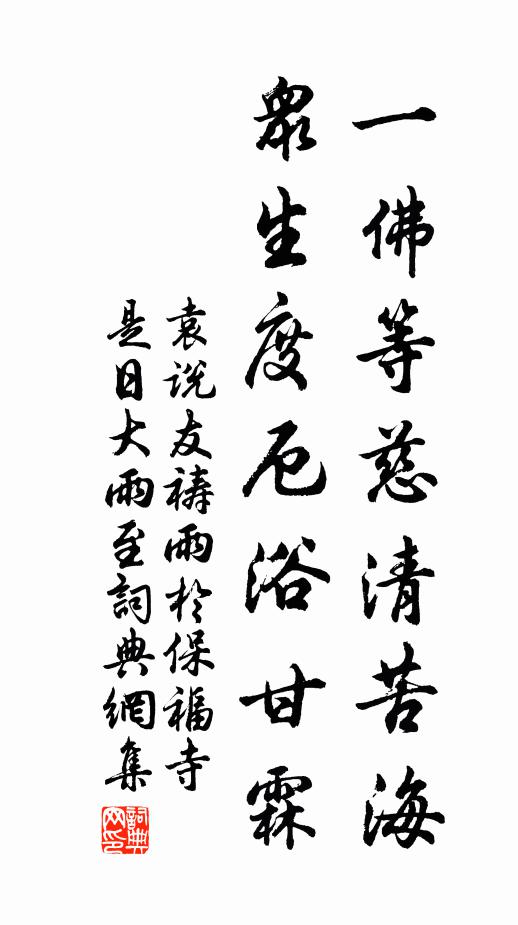 一佛等慈清苦海
眾生度厄浴甘霖
袁說友禱雨於保福寺
是日大雨至詞典網集
詞典网印